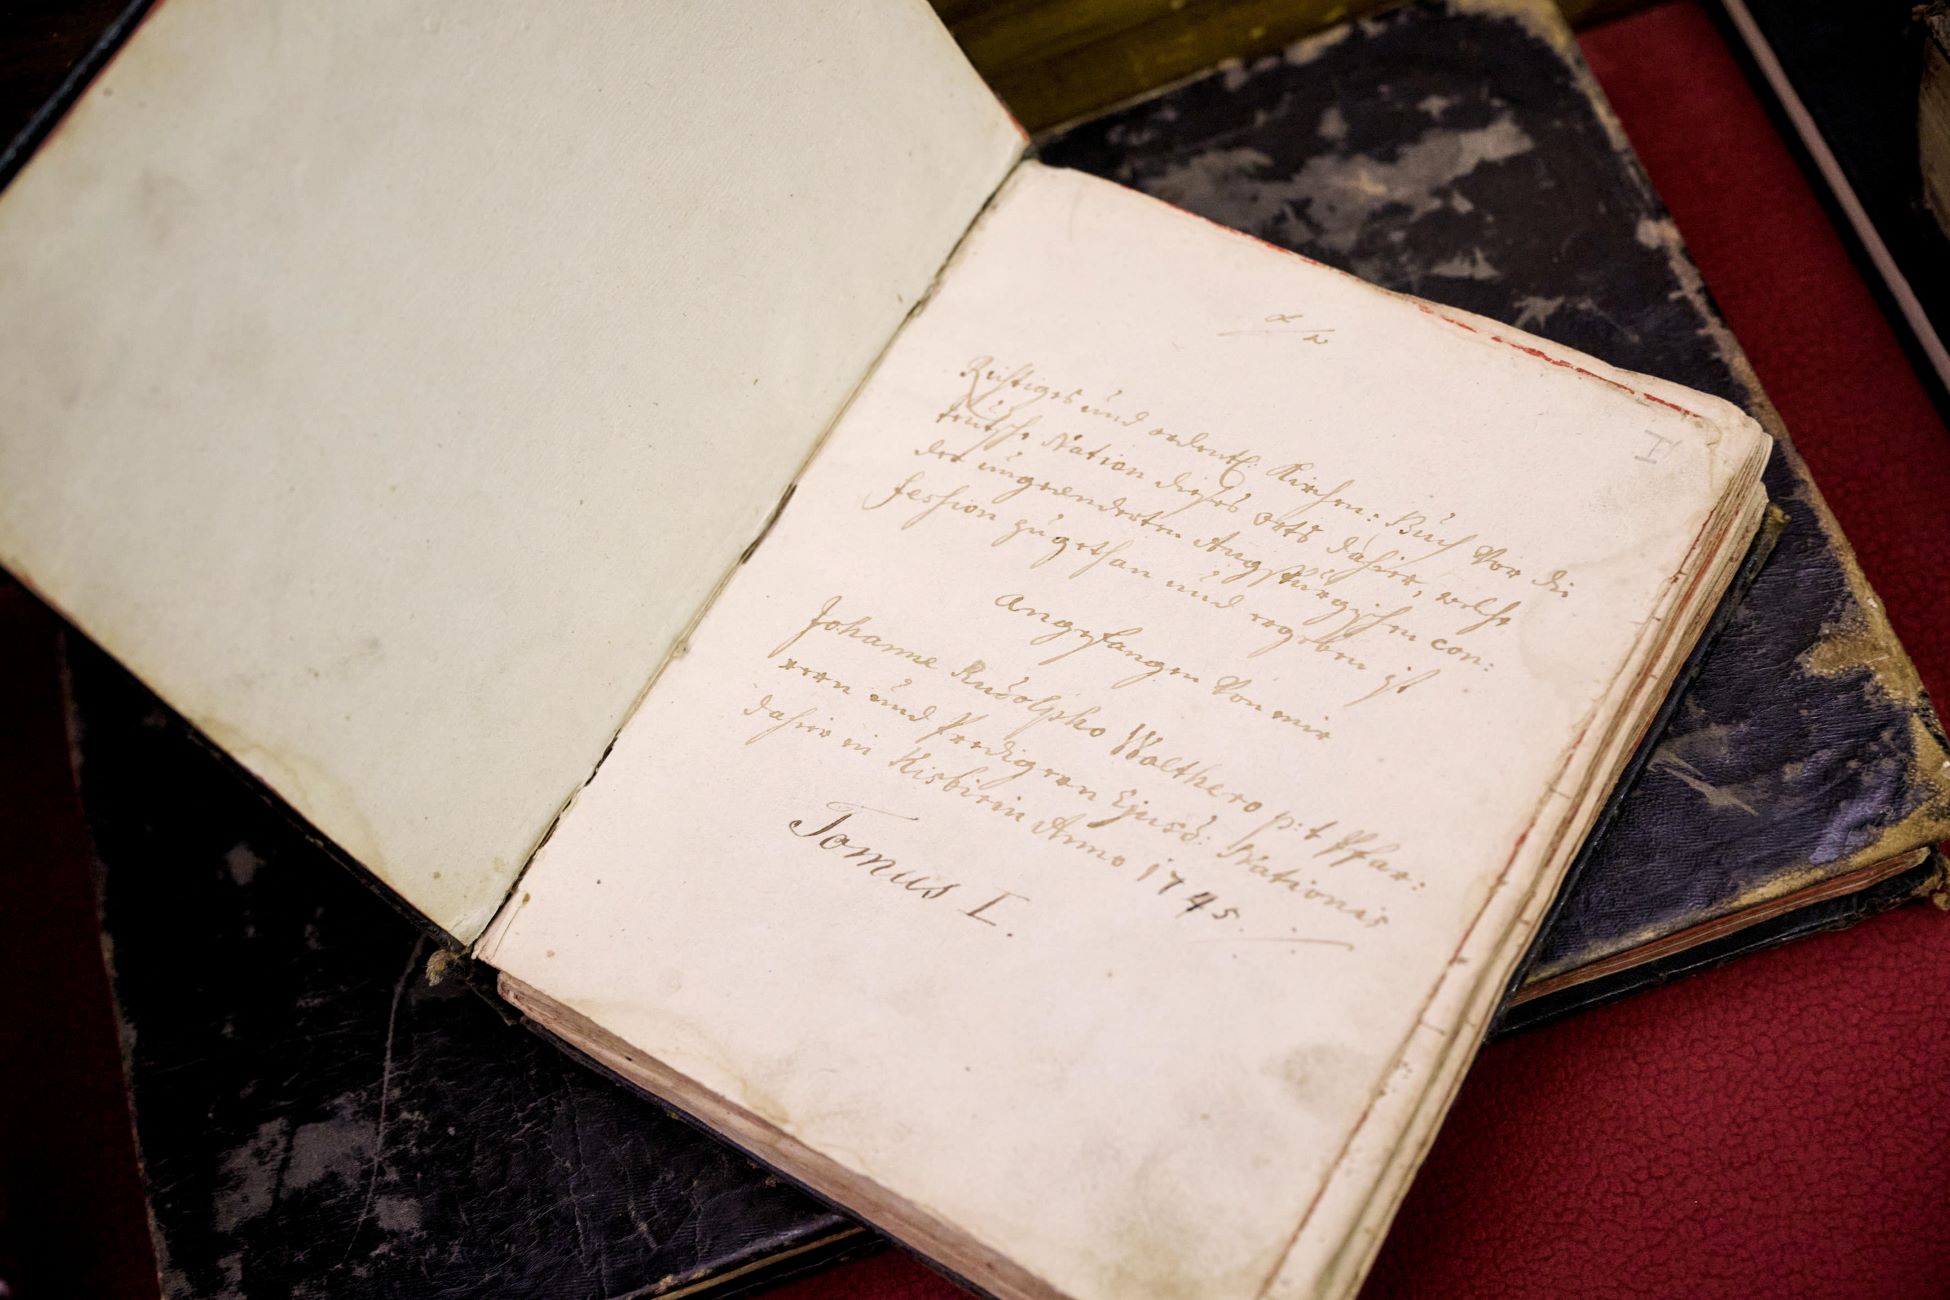 α/ω
I
Richtiges und ordentl: Kirchen: Buch Vor die
teutsche Nation dießes orts dahier, welche
der ungeenderten Augspurgischen Con:
fession zugethan und ergeben ist
Angefangen Von mir
Johanne Rudolpho Walthero p: t Pfar:
rern und Predigern Ejusd: Nationis
dahier in Kisbirin Anno 1745.
Tomus I.